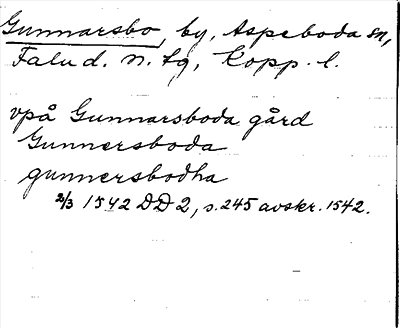 Gunnarsbo, by, Aspeboda sn,
Falu d. n. tg, Kopp. l.
vpå Gunnarsboda gård
Gunnersboda
gunnersbodha
2/3 1542 DD 2, s. 245 avskr. 1542.